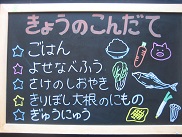 きょうのこんだて
ごはん
よせなべふう
さけのしおやき
きりぼし大根のにもの
ぎゅうにゅう